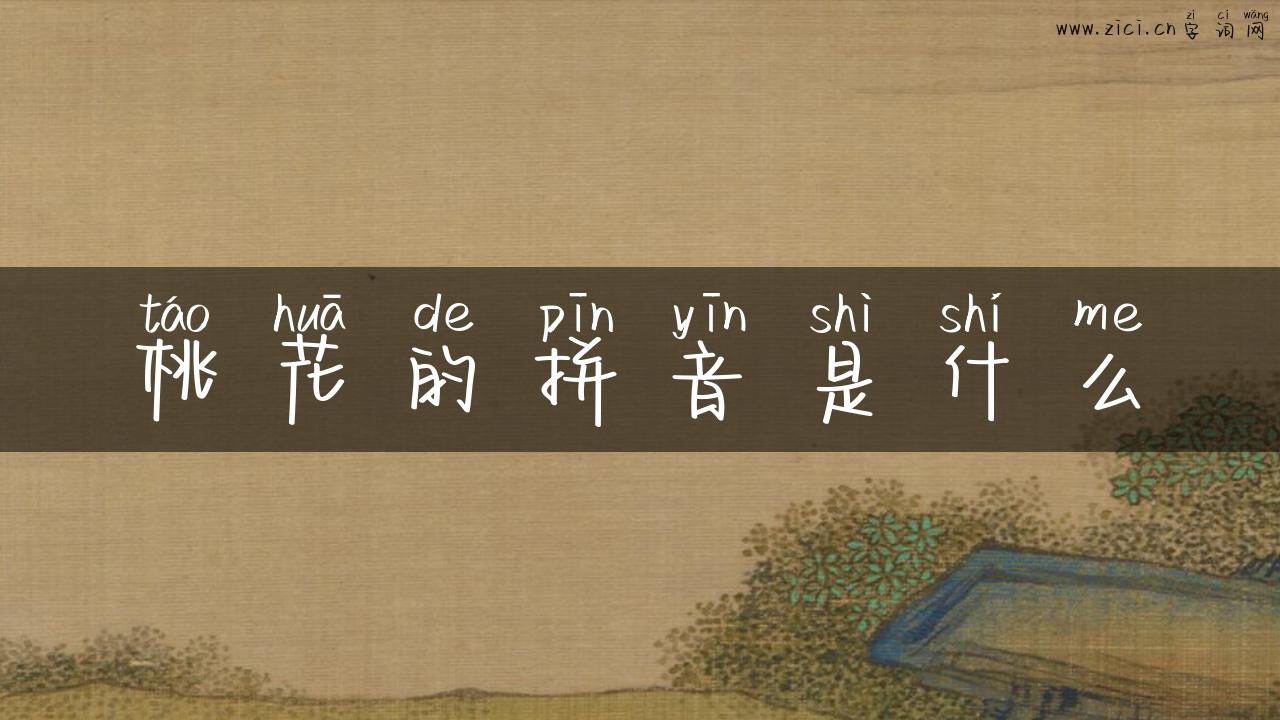 zì cí wǎng
www.zici.cn 字词网
táo huā de pīn yīn shì shí me
桃花的拼音是什么